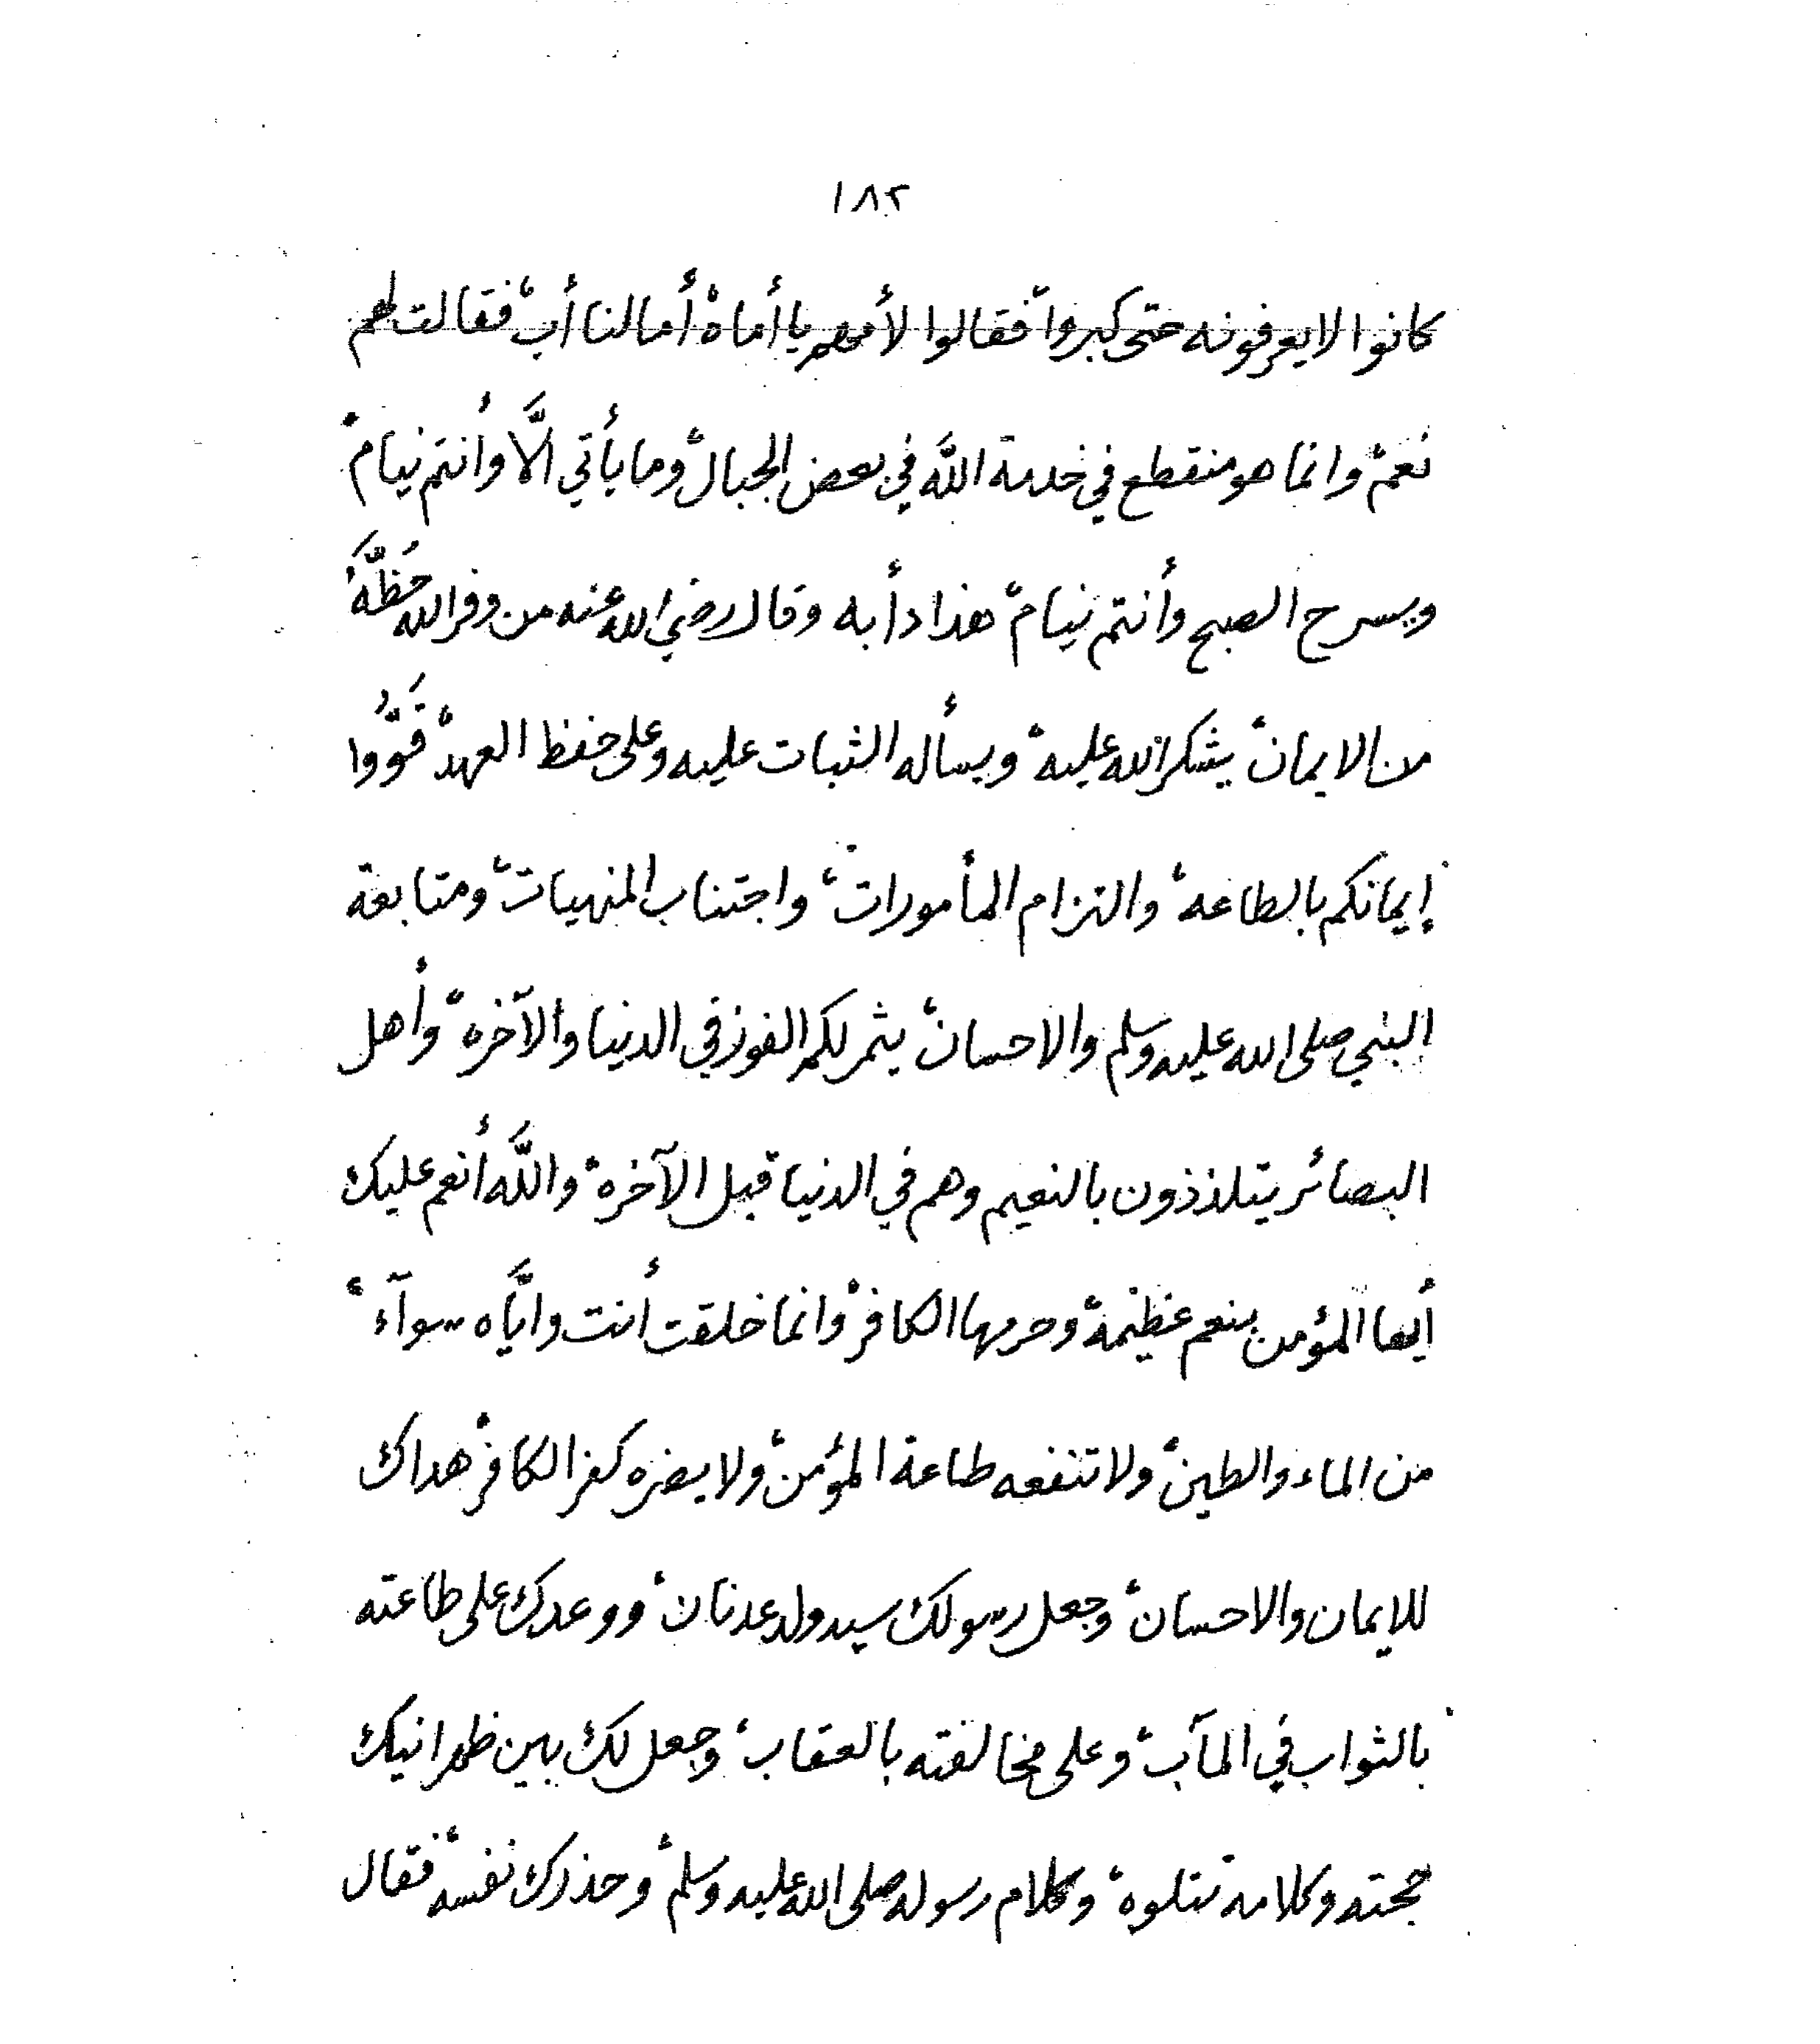 ١٨٢
كانوا لا يعرفونه حتى كبروا، فقالوا لأمهم يا أماه، أما لنا أب، فقالت لهم
نعم، وانما هو منقطع في خدمة اللَّه في بعض الجبال، وما يأتي الَّا وأنتم نيام،
ويسرح الصبح وأنتم نيام، هذا دأبه وقال رضي الله عنه من وفر الله حُظَّهُ
من الايمان، يشكر الله عليه، ويسأله الثبات عليه وعلى حفظ العهد، قَوُّوا
إيمانكم بالطاعة، والتزام المأمورات، واجتناب المنهيات، ومتابعة
النبي صلى الله عليه وسلم والاحسان، يثمر لكم الفوز في الدنيا والآخره، وأهل
البصائر يتلذذون بالنعيم وهم في الدنيا قبل الآخره، واللَّه أنعم عليك
أيها المؤمن بنعم عظيمة، وحرمها الكافر، وانما خلقت أنت وايَّاه سوآء،
من الماء والطين، ولا تنفعه طاعة المؤمن، ولا يضره كفر الكافر، هداك
للايمان والاحسان، وجعل رسولك سيد ولد عدنان، ووعدك على طاعته
بالثواب في المآب، وعلى مخالفته بالعقاب، وجعل لك بين ظهرانيك
حجته وكلامه تتلوه، وكلام رسوله صلى الله عليه وسلم، وحذرك نفسه، فقال